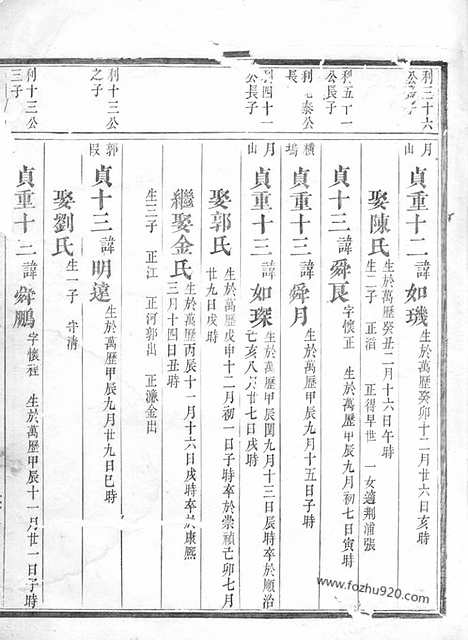 利三十六
月山
貞重十二諱如璣生於萬歷癸卯十二月廿六日亥時
娶陳氏生於萬歷癸丑二月十六日午時
生二子 正滔 正得早世 一女適荆浦張
公長子
貞十三諱舜良字懷正 生於萬歷甲辰九月初七日寅時
橫塢
貞重十三諱舜月生於萬歷甲辰九月十五日子時
利四十一
公長子
月山
貞重十三諱如琛生於萬歷甲辰閏九月十三日辰時卒於順治
亥八月廿七日戌時
娶郭氏生於萬歷戊申十二月初一日子時卒於崇禎己卯七月
廿九日戌時
繼娶金氏生於萬歷丙辰十一月十六日戌時卒於康熙
三月十四日丑時
生三子 正江 正河郭出 正濂金出
利十三公
之子
郭
貞十三諱明遠生於萬歷甲辰九月廿九日巳時
娶劉氏生一子 守清
利十三公
三子
貞重十二諱舜鵬字懷程 生於萬歷甲辰十一月廿一日子時
www.fozhu920.com